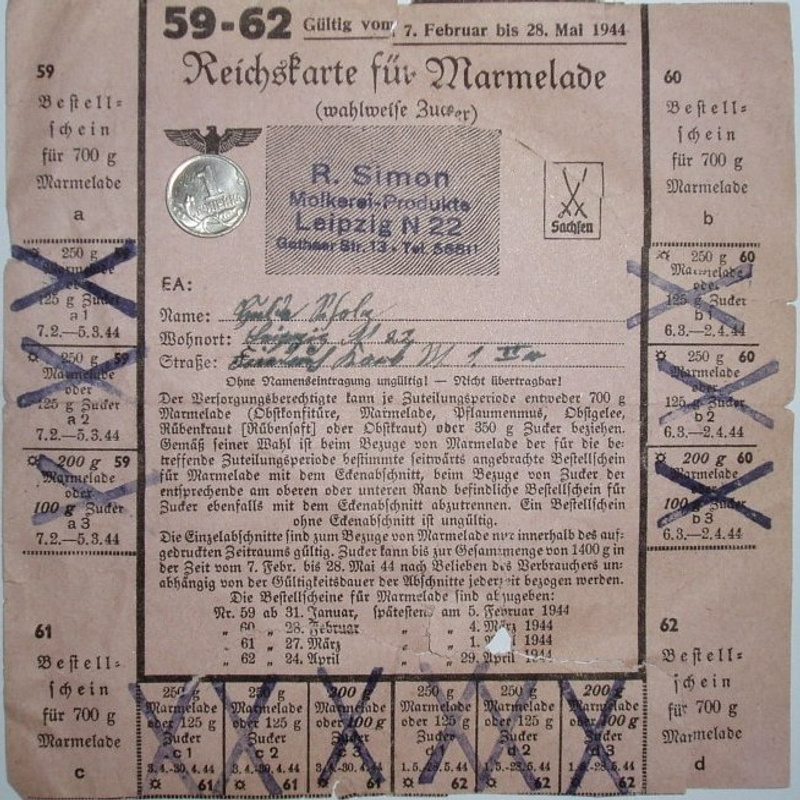 59-62 Gültig vom 7. Februar bis 28. Mai 1944
Reichskarte für Marmelade
(wahlweise Zucker)
59
Bestell=
schein
für 700 g
Marmelade
a
60
Bestell=
schein
für 700 g
Marmelade
b
R. Simon
Molkerei-Produkte
Leipzig N 22
Gothaer Str. 13 · Tel. 56811
Sachsen
EA:
Name:
Wohnort: Leipzig N 22
Straße:
Ohne Namenseintragung ungültig! — Nicht übertragbar!
Der Versorgungsberechtigte kann je Zuteilungsperiode entweder 700 g
Marmelade (Obstkonfitüre, Marmelade, Pflaumenmus, Obstgelee,
Rübenkraut [Rübensaft] oder Obstkraut) oder 350 g Zucker beziehen.
Gemäß seiner Wahl ist beim Bezuge von Marmelade der für die be-
treffende Zuteilungsperiode bestimmte seitwärts angebrachte Bestellschein
für Marmelade mit dem Eckenabschnitt, beim Bezuge von Zucker der
entsprechende am oberen oder unteren Rand befindliche Bestellschein für
Zucker ebenfalls mit dem Eckenabschnitt abzutrennen. Ein Bestellschein
ohne Eckenabschnitt ist ungültig.
Die Einzelabschnitte sind zum Bezuge von Marmelade nur innerhalb des auf-
gedruckten Zeitraums gültig. Zucker kann bis zur Gesamtmenge von 1400 g in
der Zeit vom 7. Febr. bis 28. Mai 44 nach Belieben des Verbrauchers un-
abhängig von der Gültigkeitsdauer der Abschnitte jederzeit bezogen werden.
Die Bestellscheine für Marmelade sind abzugeben:
Nr. 59 ab 31. Januar, spätestens am 5. Februar 1944
„ 60 „ 28. Februar „ „ 4. März 1944
„ 61 „ 27. März „ „ 1. 1944
„ 62 „ 24. April „ „ 29. April 1944
250 g 59
Marmelade
oder
125 g Zucker
a 1
7.2.—5.3.44
250 g 59
Marmelade
oder
125 g Zucker
a 2
7.2.—5.3.44
200 g 59
Marmelade
oder
100 g Zucker
a 3
7.2.—5.3.44
250 g 60
Marmelade
oder
125 g Zucker
b 1
6.3.—2.4.44
250 g 60
Marmelade
oder
125 g Zucker
b 2
6.3.—2.4.44
200 g 60
Marmelade
oder
100 g Zucker
b 3
6.3.—2.4.44
61
Bestell=
schein
für 700 g
Marmelade
c
62
Bestell=
schein
für 700 g
Marmelade
d
250 g
Marmelade
oder 125 g
Zucker
c 1
3.4.-30.4.44
61
250 g
Marmelade
oder 125 g
Zucker
c 2
3.4.-30.4.44
61
200 g
Marmelade
oder 100 g
Zucker
c 3
3.4.-30.4.44
61
250 g
Marmelade
oder 125 g
Zucker
d 1
1.5.-28.5.44
62
250 g
Marmelade
oder 125 g
Zucker
d 2
1.5.-28.5.44
62
200 g
Marmelade
oder 100 g
Zucker
d 3
1.5.-28.5.44
62